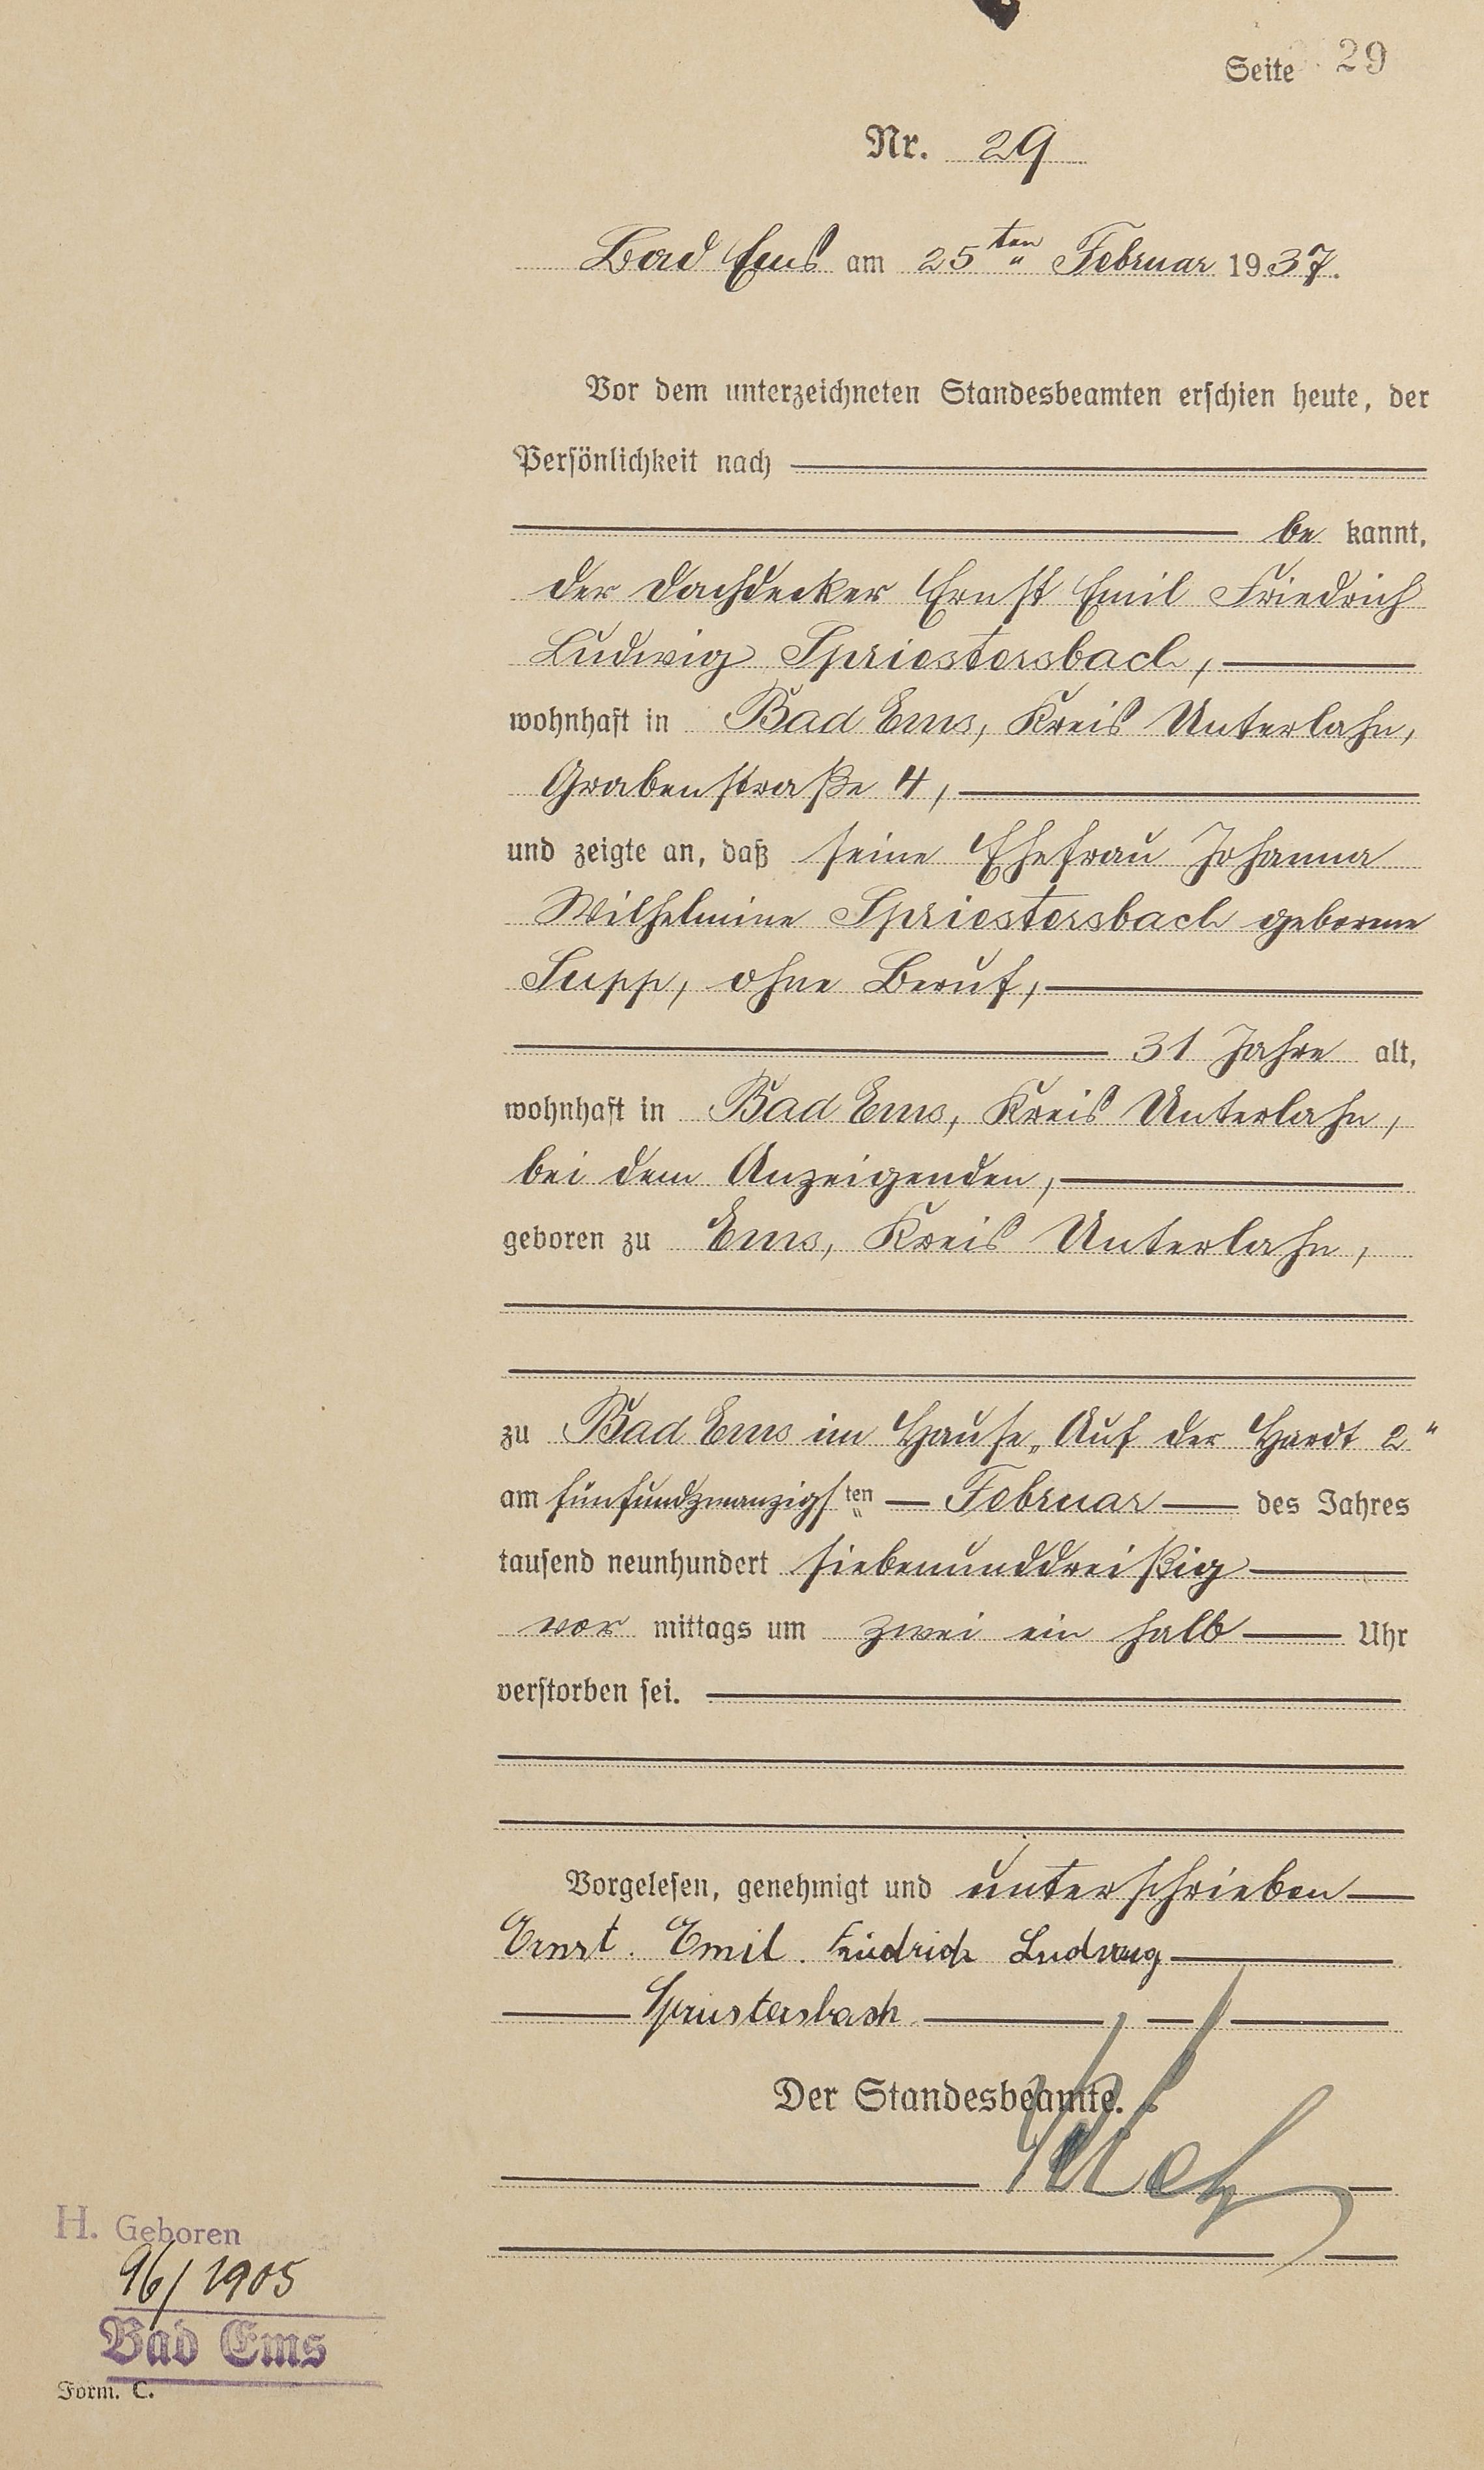 Seite 29
Nr. 29
Bad Ems am 25ten Februar 1937.
Vor dem unterzeichneten Standesbeamten erschien heute, der
Persönlichkeit nach
be kannt,
der Dachdecker Ernst Emil Friedrich
Ludwig Spriestersbach,
wohnhaft in Bad Ems, Kreis Unterlahn,
Grabenstraße 4,
und zeigte an, daß seine Ehefrau Johanna
Wilhelmine Spriestersbach geborene
Supp, ohne Beruf,
31 Jahre alt,
wohnhaft in Bad Ems, Kreis Unterlahn,
bei dem Anzeigenden,
geboren zu Ems, Kreis Unterlahn,
zu Bad Ems im Hause „Auf der Hardt 2“
am fünfundzwanzigsten Februar des Jahres
tausend neunhundert siebenunddreißig
vor mittags um zwei ein halb Uhr
verstorben sei.
Vorgelesen, genehmigt und unterschrieben
Ernst. Emil. Friedrich Ludwig
Spriestersbach
Der Standesbeamte.
H. Geboren
96/1905
Bad Ems
Form. C.